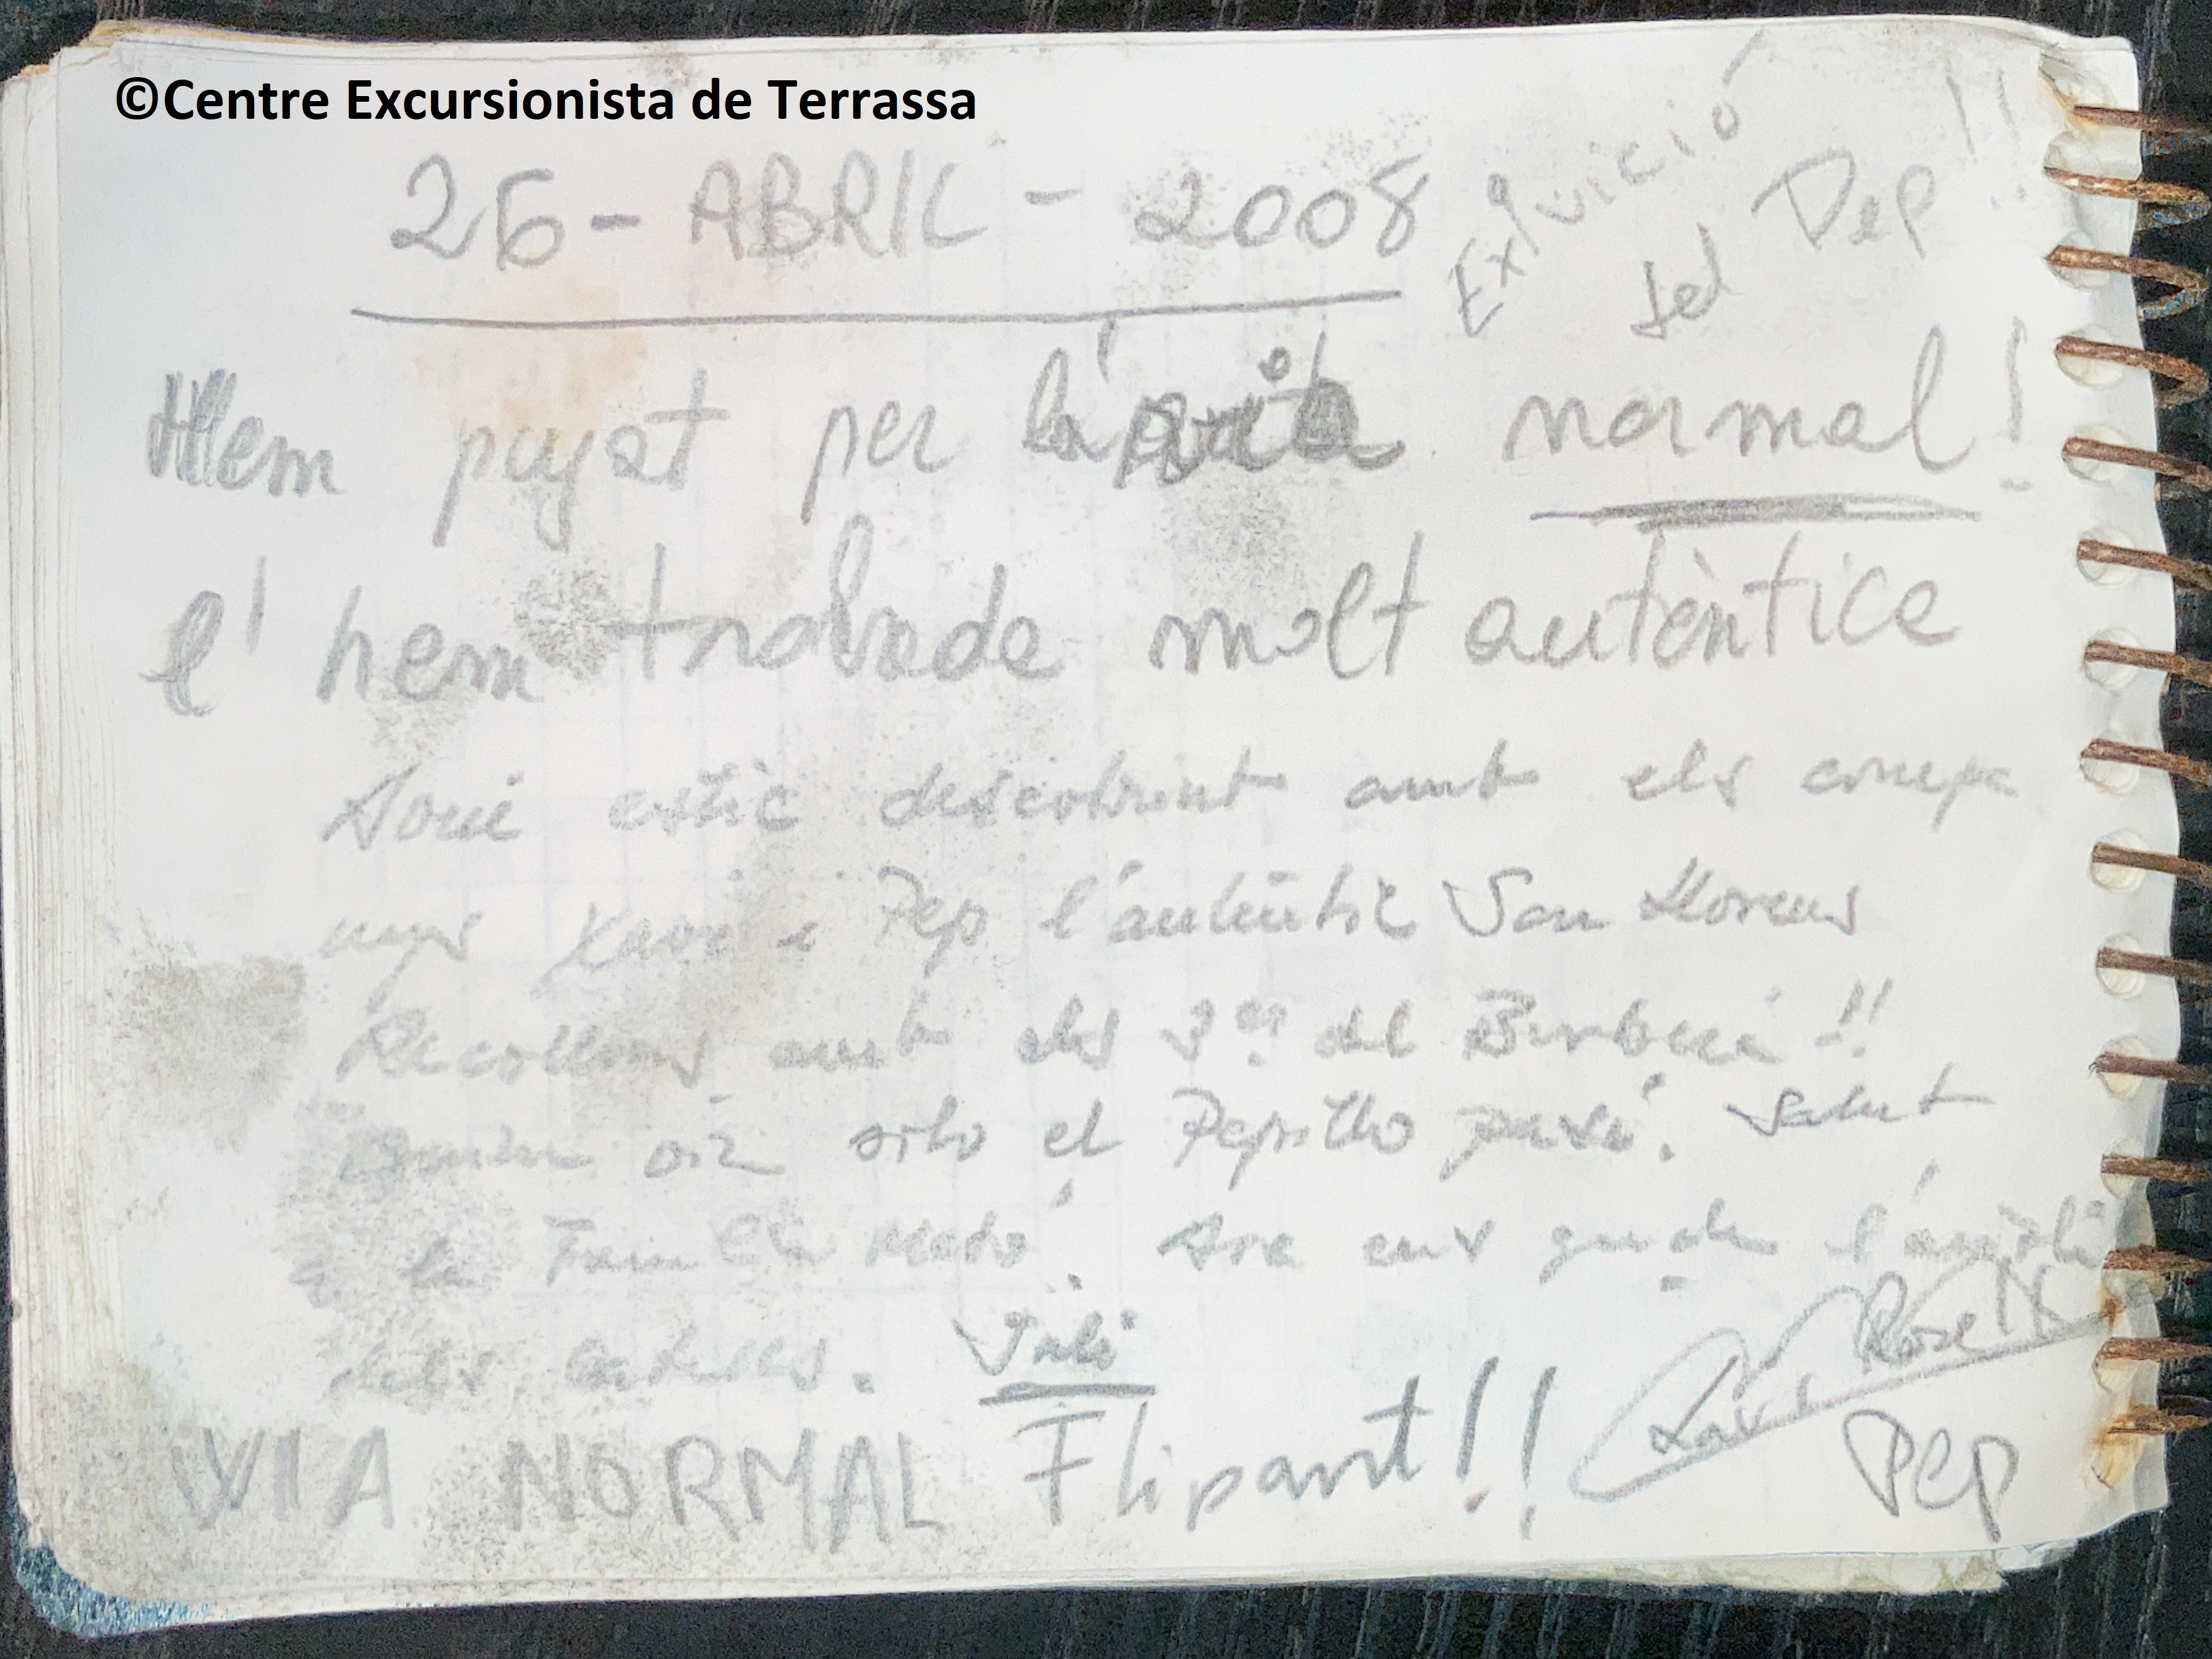 ©Centre Excursionista de Terrassa
26 - ABRIL - 2008
del Pep!!
Hem pujat per la normal!
l'hem trobada molt autèntica
Avui estic descobrint amb els compa
nys Xavi i Pep l'autèntic San Llorenç
Recollons amb els 3ers del Berbecé!!
sólo el Pepillo pasó. Salut
a la Família Masó. Ara ens guda
dels . Juli
VIA NORMAL Flipant!!
Xavi Rosell
Pep